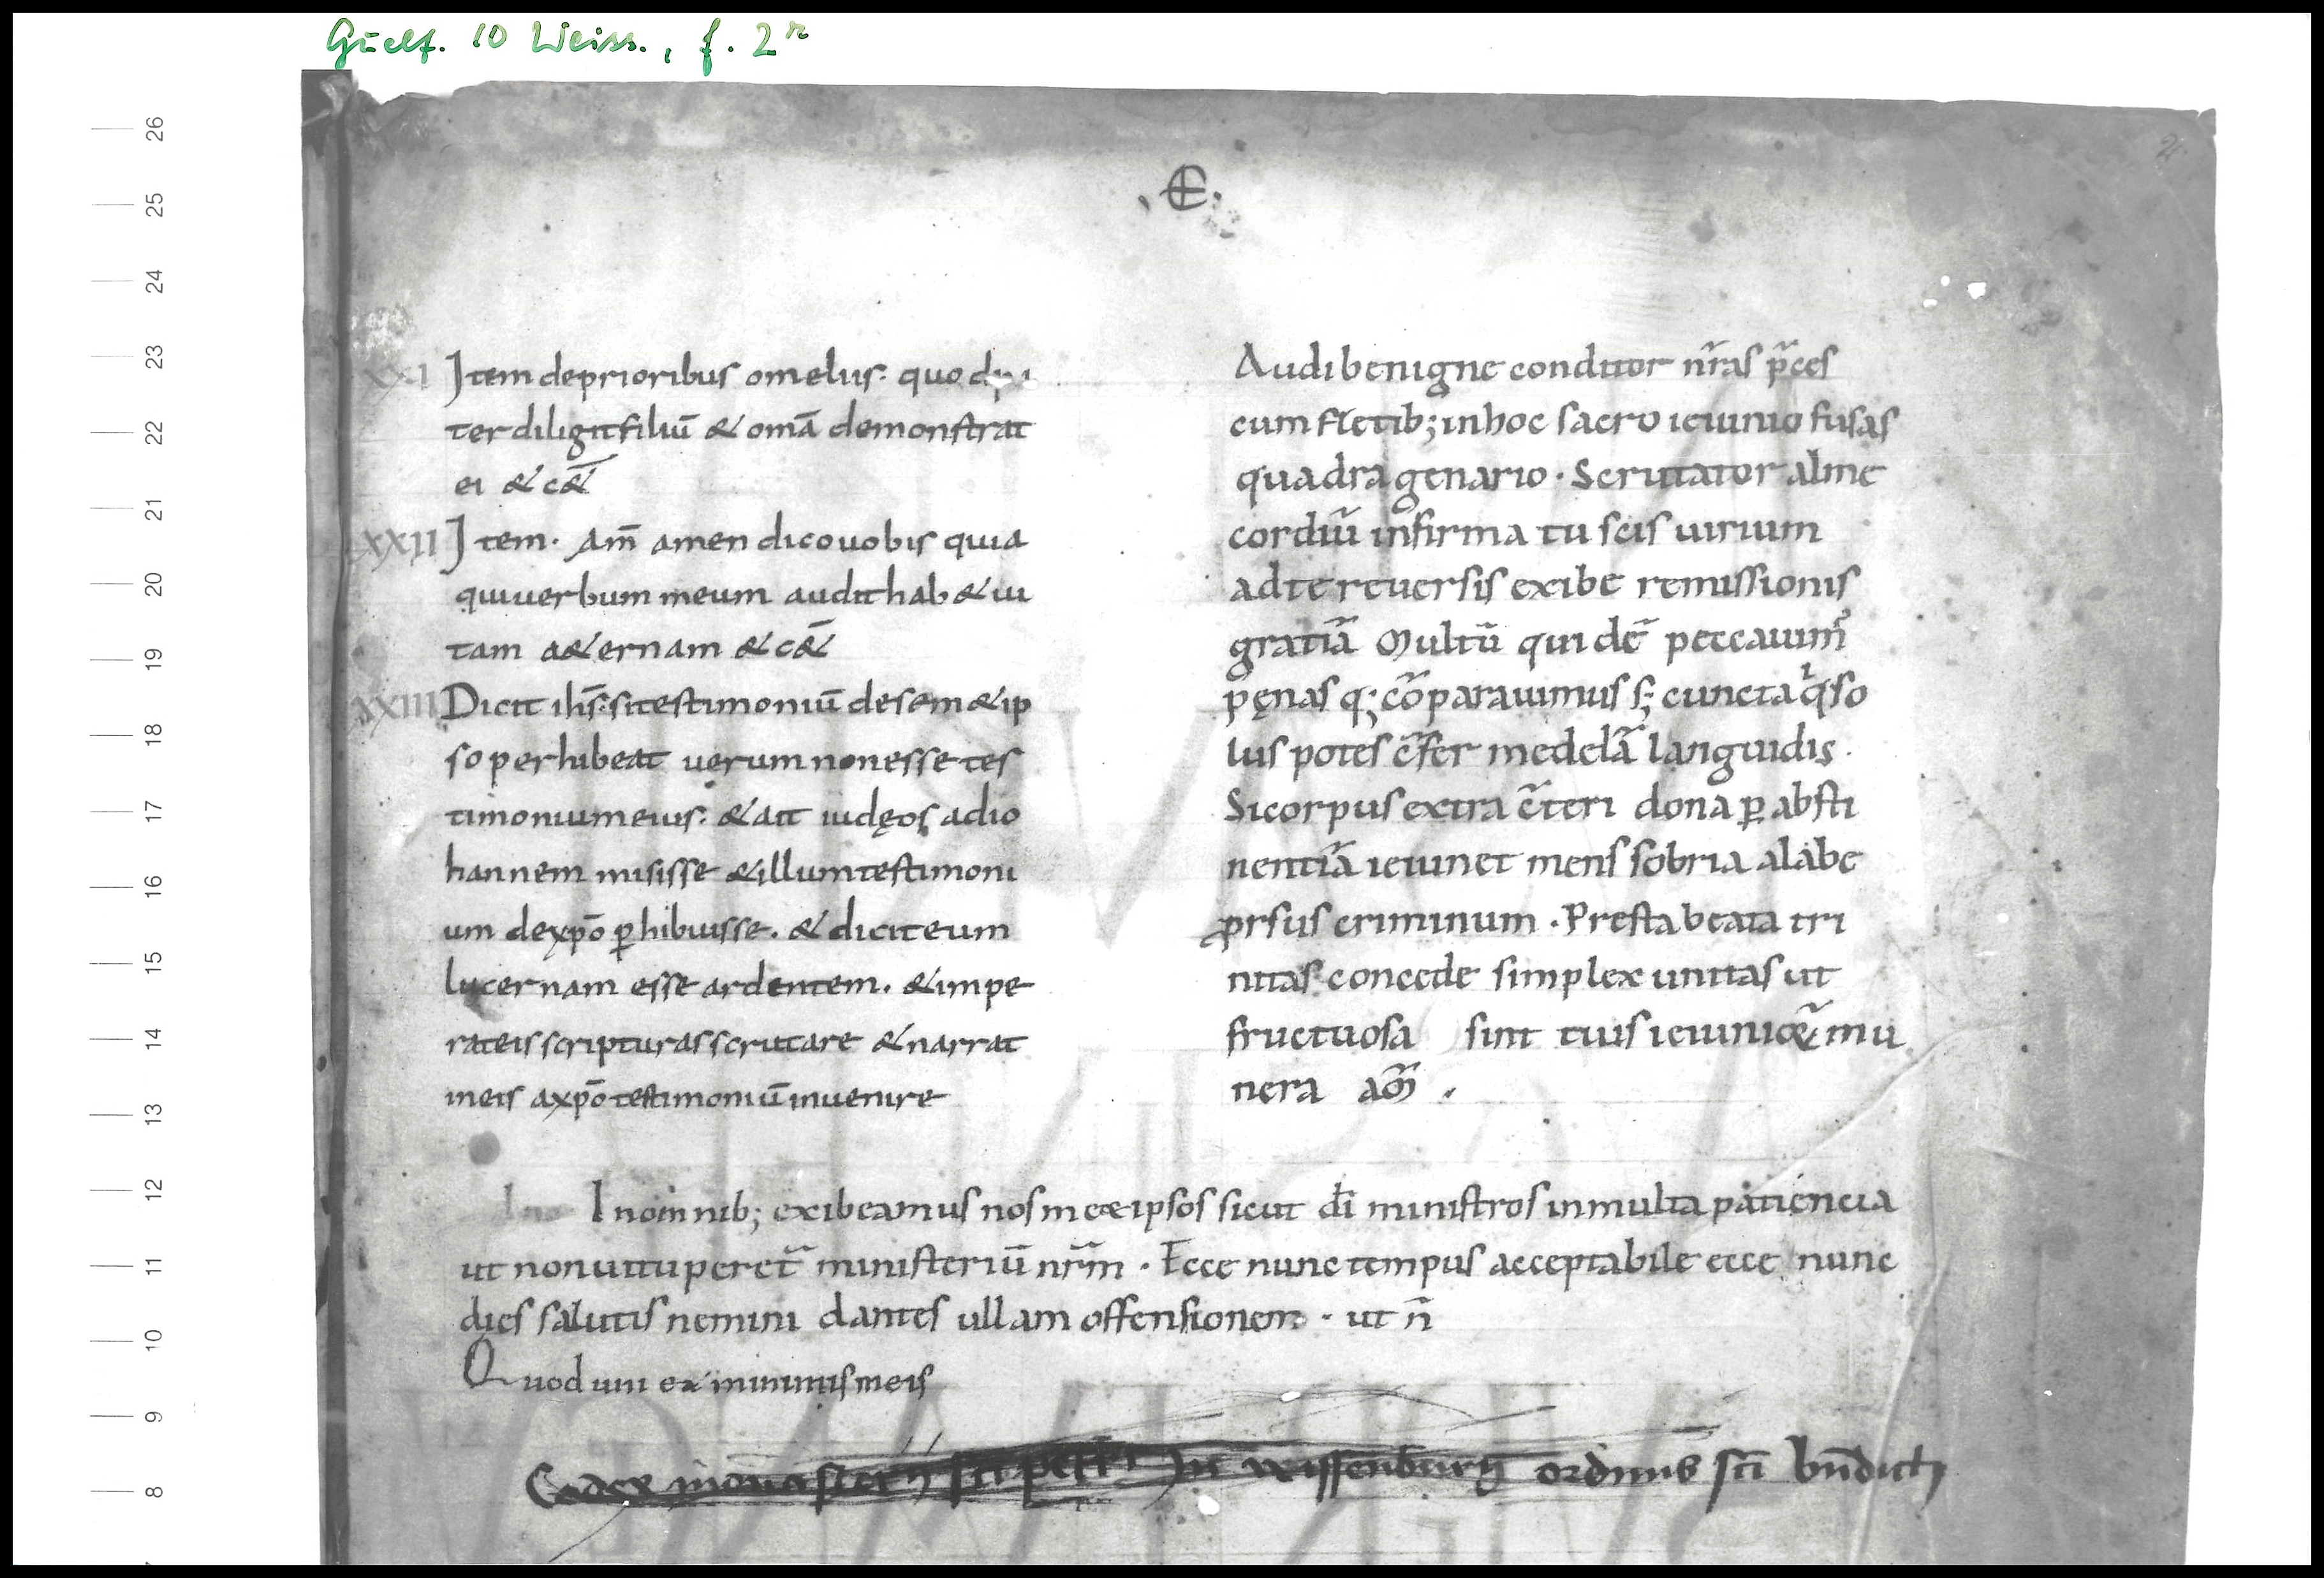 Guelf. 10 Weiss., f. 2r
26
25
24
23
22
21
20
19
18
17
16
15
14
13
12
11
10
9
8
2
·E·
XXI Item deprioribus omeliis· quo
ter diligit filiū & omā demonstrat
ei & c&̄
XXII Item· Am̄ amen dico uobis quia
qui uerbum meum audit hab& ui
tam a&ernam & c&̄
XXIII Dicit ih̄s· si testimoniū de sem&ip
so perhibeat uerum non esse tes
timonium eius· & ait iudęos adio
hannem misisse & illum testimoni
um de xp̄o ꝑhibuisse· & dicit eum
lucernam esse ardentem· & impe
rat eis scripturas scrutare & narrat
in eis a xp̄o testimoniū inuenire
Audi benigne conditor nr̄as p̄ces
cum fletib; in hoc sacro ieiunio fusas
quadragenario· Scrutator alme
cordiū infirma tu scis uirium
ad te reuersis exibe remissionis
gratiā Multū qui dē peccauim᾽
pęnas q; cōparauimus s; cuncta q̍ so
lus potes c̄fer medelā languidis·
Si corpus extra c̄teri dona ꝑ absti
nentiā ieiunet mens sobria a labe
ꝓrsus criminum· Presta beata tri
nitas concede simplex unitas ut
fructuosa sint tuis ieiunioꝝ mu
nera am̄·
In omnib; exibeamus nosmetipsos sicut dī ministros in multa patiencia
ut non uituperet᷑ ministeriū nr̄m· Ecce nunc tempus acceptabile ecce nunc
dies salutis nemini dantes ullam offensionem· ut n̄
Quod uni ex minimis meis
Codex monasterij sc̄i petri In wissenburg ordinis sc̄i bn̄dicti